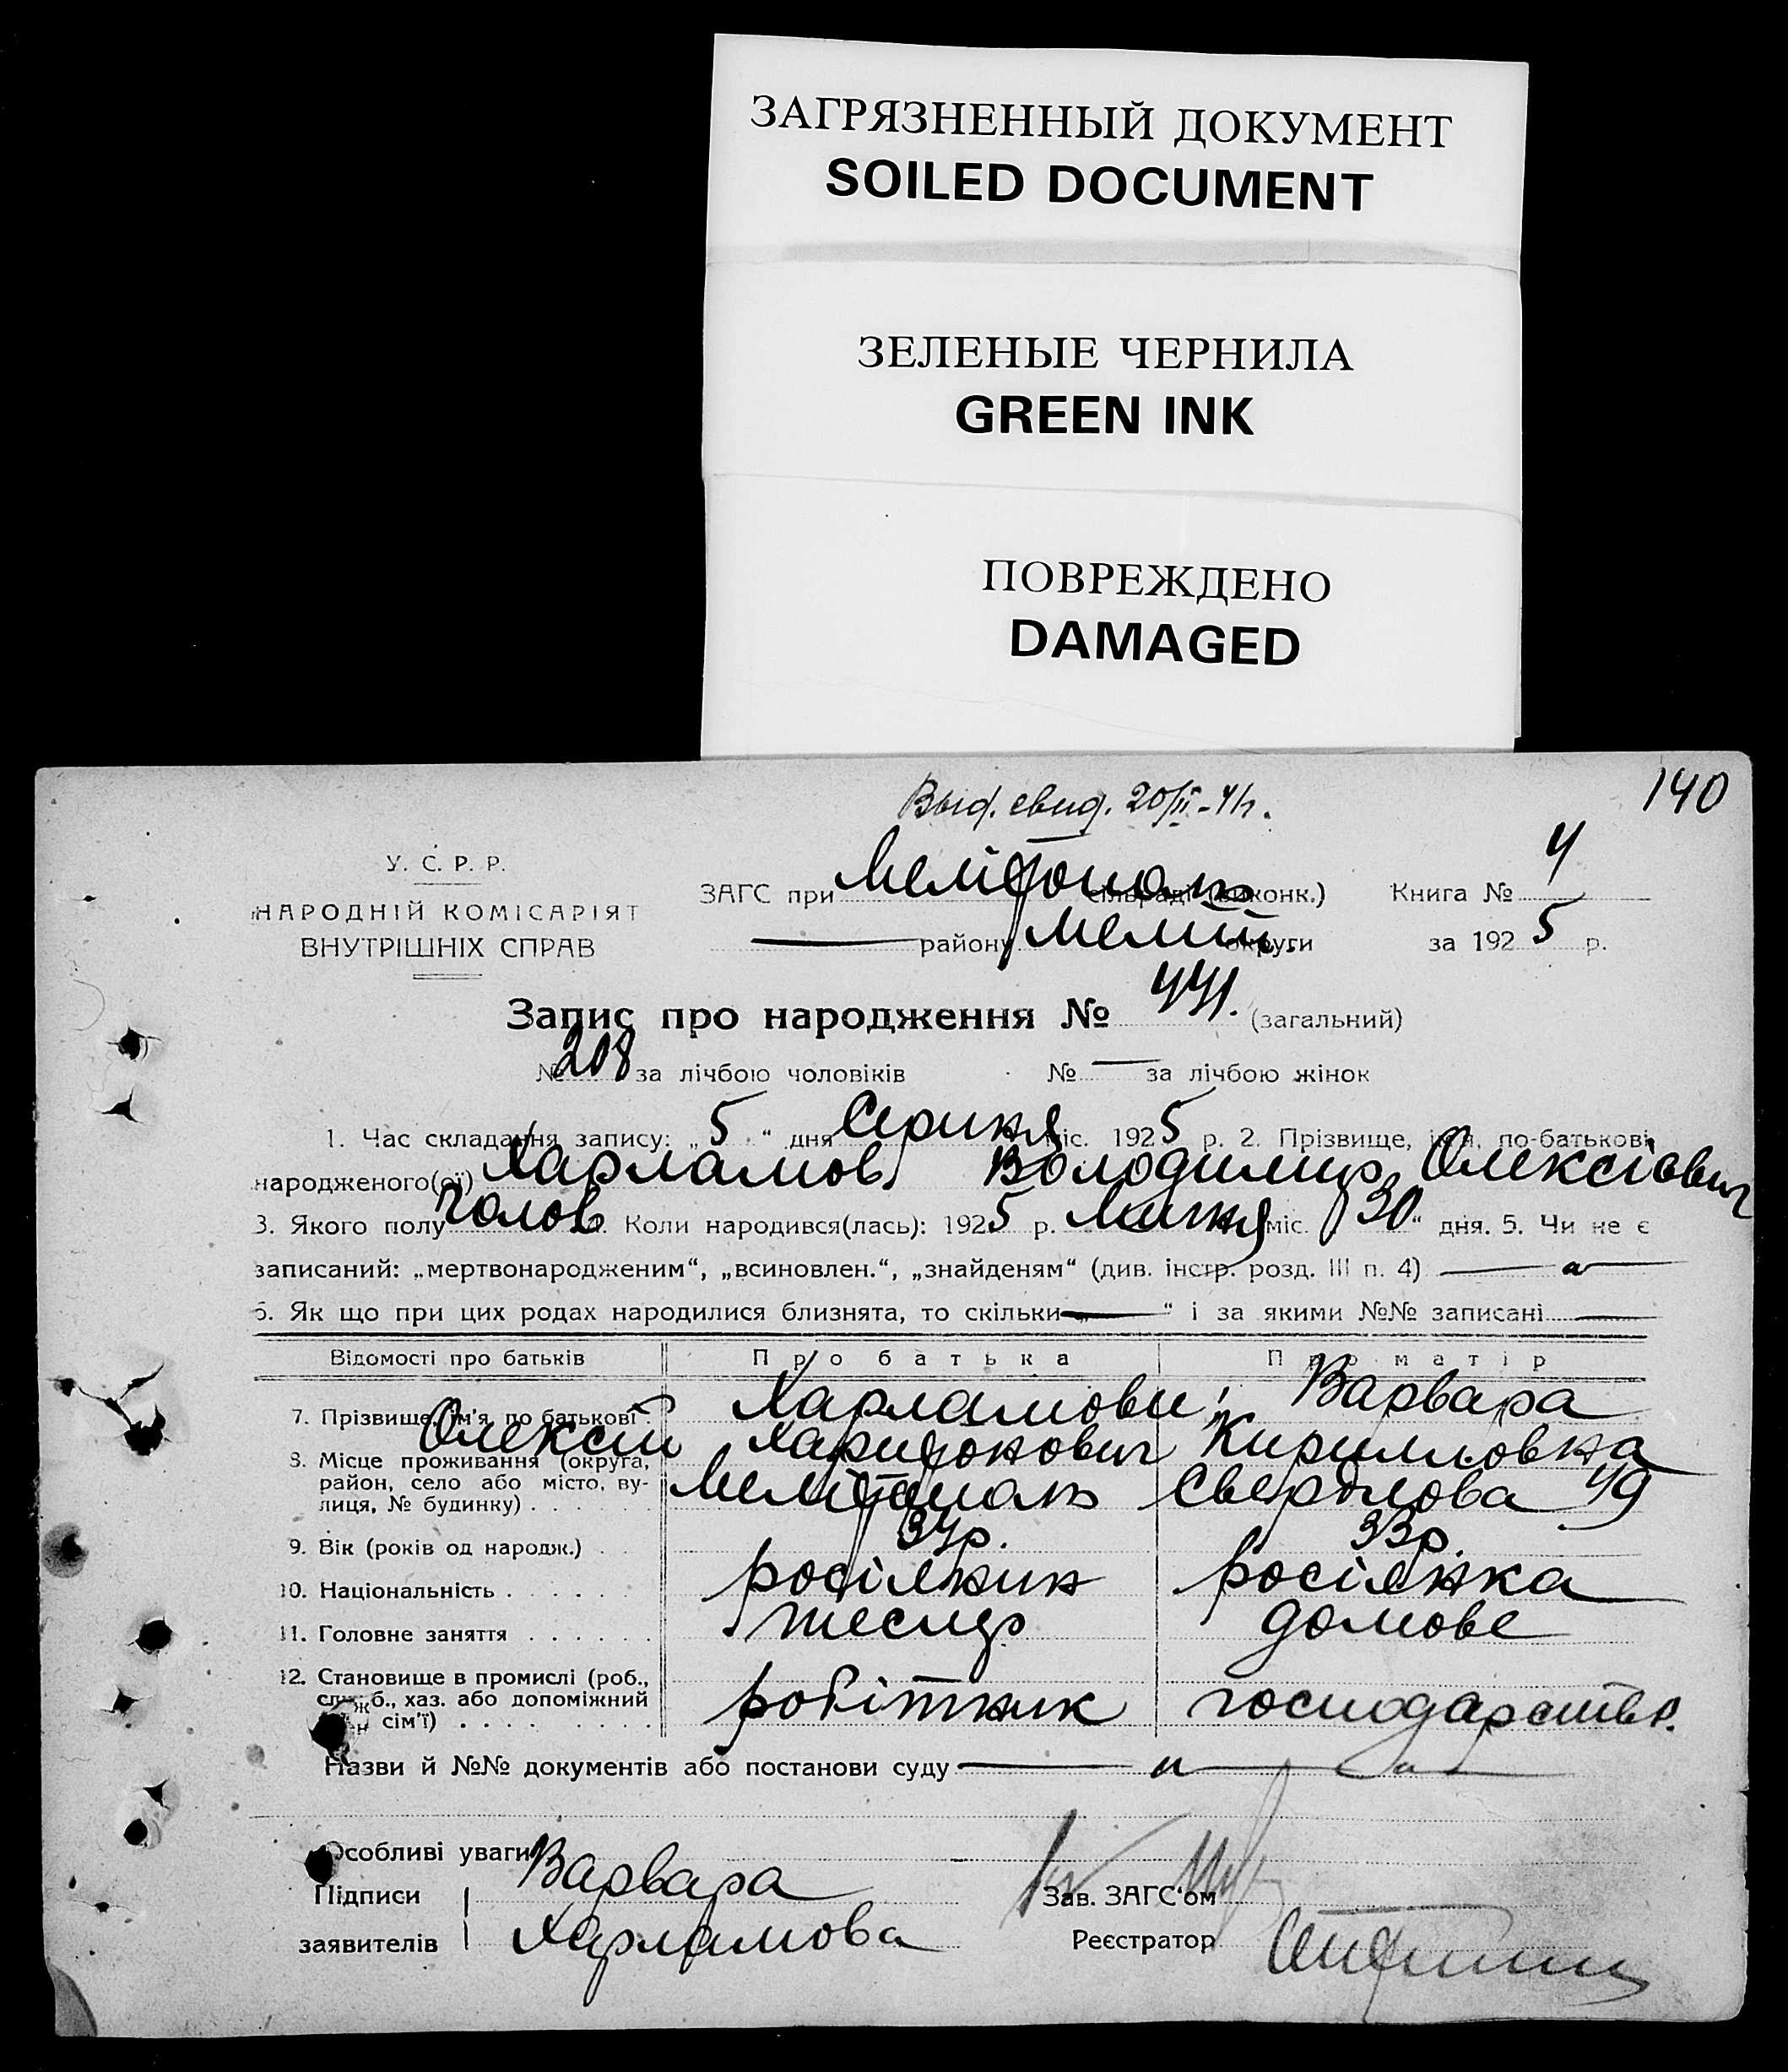 ЗАГРЯЗНЕННЫЙ ДОКУМЕНТ
SOILED DOCUMENT
ЗЕЛЕНЫЕ ЧЕРНИЛА
GREEN INK
ПОВРЕЖДЕНО
DAMAGED
140
Выд. свид. 20/II-41г.
У. С. Р. Р.
НАРОДНІЙ КОМІСАРІЯТ
ВНУТРІШНІХ СПРАВ
ЗАГС при Мелітополь сільраді (виконк.) Книга № 4
району Меліт. округи за 1925 р.
Запис про народження № 441. (загальний)
№ 208 за лічбою чоловіків № — за лічбою жінок
1. Час складання запису: „5“ дня Серпня міс. 1925 р. 2. Прізвище, ім'я, по-батькові
народженого(ої) Харламов Володимир Олексієвич
3. Якого полу чолов. Коли народився(лась): 1925 р. Липня міс. „30“ дня. 5. Чи не є
записаний: „мертвонародженим“, „всиновлен.“, „знайденям“ (див. інстр. розд. III п. 4) —
6. Як що при цих родах народилися близнята, то скільки „—“ і за якими №№ записані —
Відомості про батьків Про батька Про матір
7. Прізвище, ім'я, по батькові Харламови; Варвара
Олексій Харитонович Кирилловна
8. Місце проживання (округа,
район, село або місто, вулиця, № будинку) Мелітополь Свердлова 49
9. Вік (років од народж.) 34р. 33р.
10. Національність росіянин росіянка
11. Головне заняття тесляр домове
12. Становище в промислі (роб.,
служб., хаз. або допоміжний
член сім'ї) робітник господарство.
Назви й №№ документів або постанови суду —
Особливі уваги
Підписи Варвара Зав. ЗАГС'ом
заявителів Харламова Реєстратор